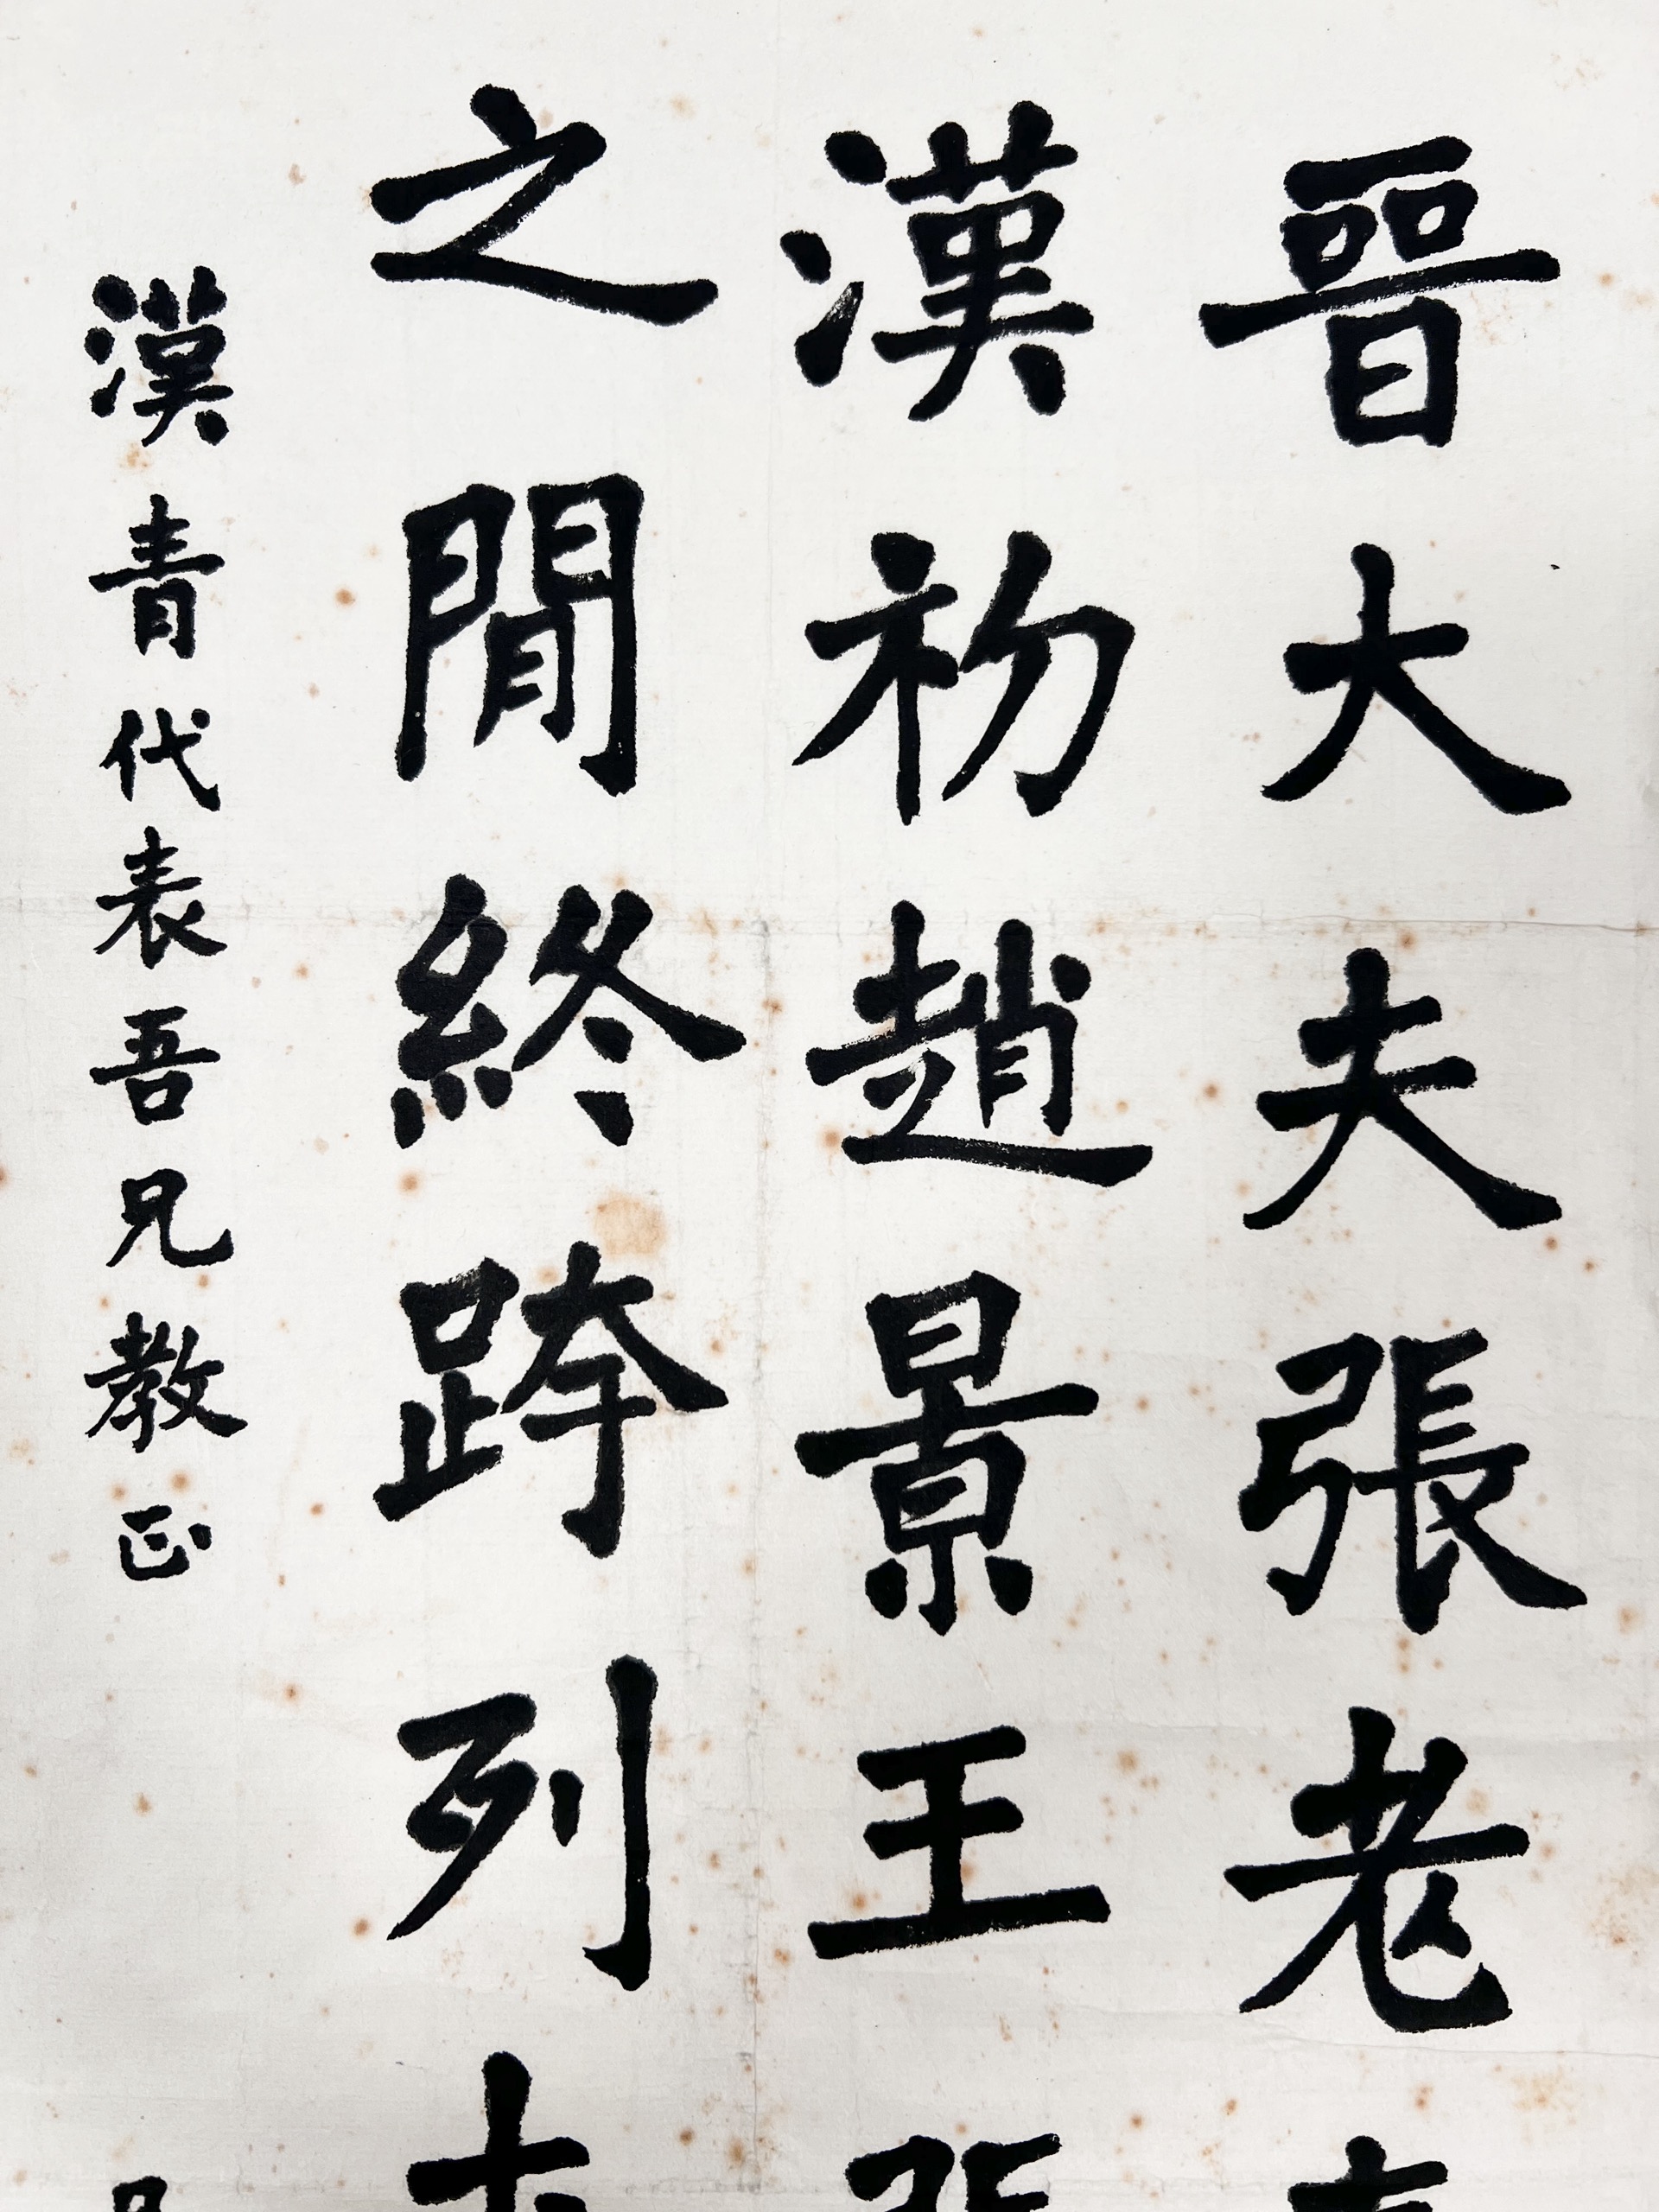 晉大夫張老
漢初趙景王張
之閒終跨列
漢青代表吾兄教正